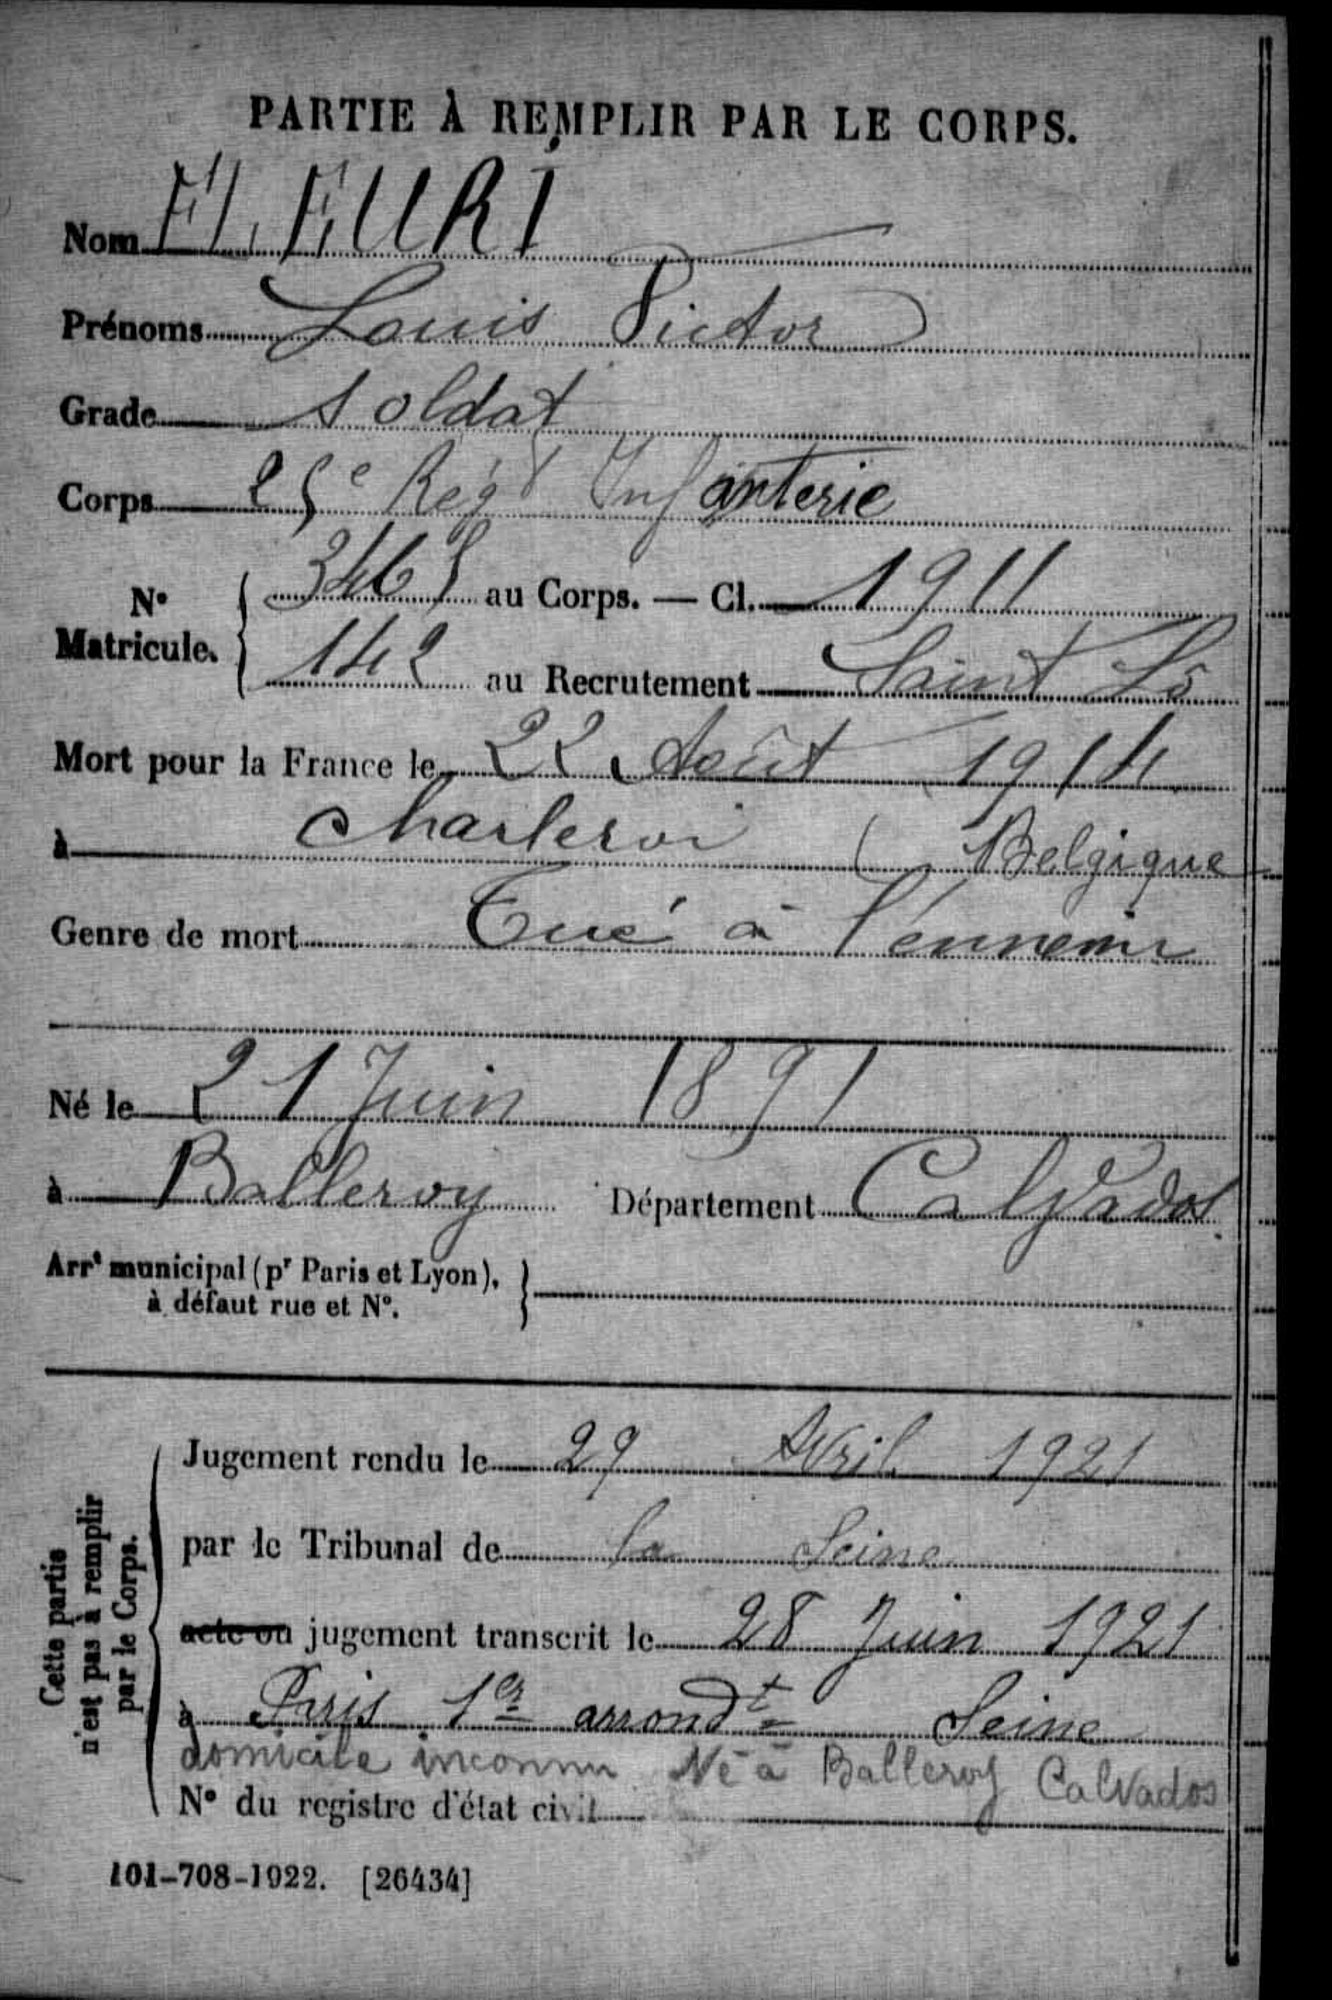 PARTIE À REMPLIR PAR LE CORPS.
Nom FLEURI
Prénoms Louis Victor
Grade soldat
Corps 25e Régt Infanterie
No Matricule. 3465 au Corps. — Cl. 1911
142 au Recrutement Saint Lô
Mort pour la France le 22 Août 1914
à Charleroi (Belgique
Genre de mort Tué à l'ennemi
Né le 21 Juin 1891
à Balleroy Département Calvados
Arrt municipal (pr Paris et Lyon),
à défaut rue et No.
Cette partie
n'est pas à remplir
par le Corps.
Jugement rendu le 29 Avril 1921
par le Tribunal de la Seine
acte ou jugement transcrit le 28 Juin 1921
à Paris 1er arrondt Seine
domicile inconnu Né à Balleroy Calvados
No du registre d'état civil
101-708-1922. [26434]